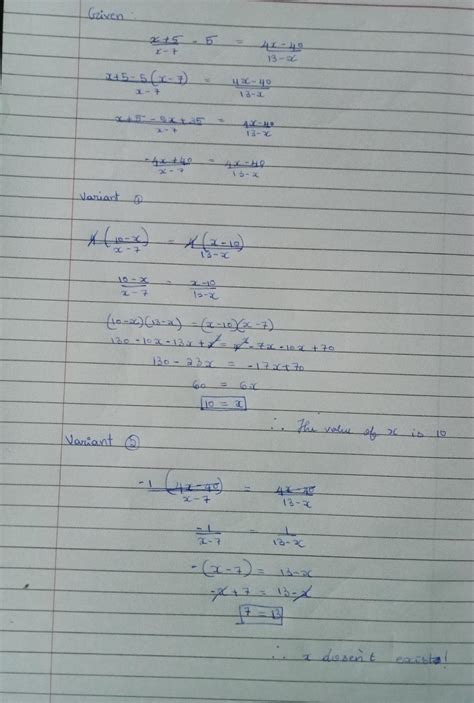 Given:
x+5/x-7 - 5 = 4x-40/13-x
x+5-5(x-7)/x-7 = 4x-40/13-x
x+5-5x+35/x-7 = 4x-40/13-x
-4x+40/x-7 = 4x-40/13-x
Variant ①
4(10-x/x-7) = 4(x-10/13-x)
10-x/x-7 = x-10/13-x
(10-x)(13-x) = (x-10)(x-7)
130-10x-13x+x² = x²-7x-10x+70
130-23x = -17x+70
60 = 6x
10 = x
∴ The value of x is 10
Variant ②
-1(4x-40/x-7) = 4x-40/13-x
-1/x-7 = 1/13-x
-(x-7) = 13-x
-x+7 = 13-x
7 = 13
∴ x dosen't exists!